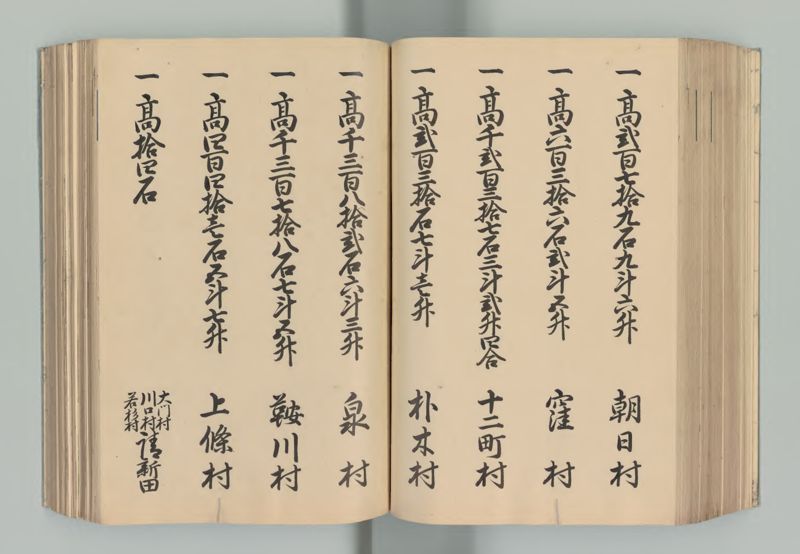 一高弐百七拾九石九斗六升 朝日村
一高六百三拾六石弐斗五升 窪村
一高千弐百三拾七石三斗弐升四合 十二町村
一高弐百三拾石七斗壱升 朴木村
一高千三百八拾弐石六斗三升 泉村
一高千三百七拾八石七斗五升 鞍川村
一高四百四拾壱石五斗七升 上條村
一高拾四石 大門村 川口村 若杉村 請新田